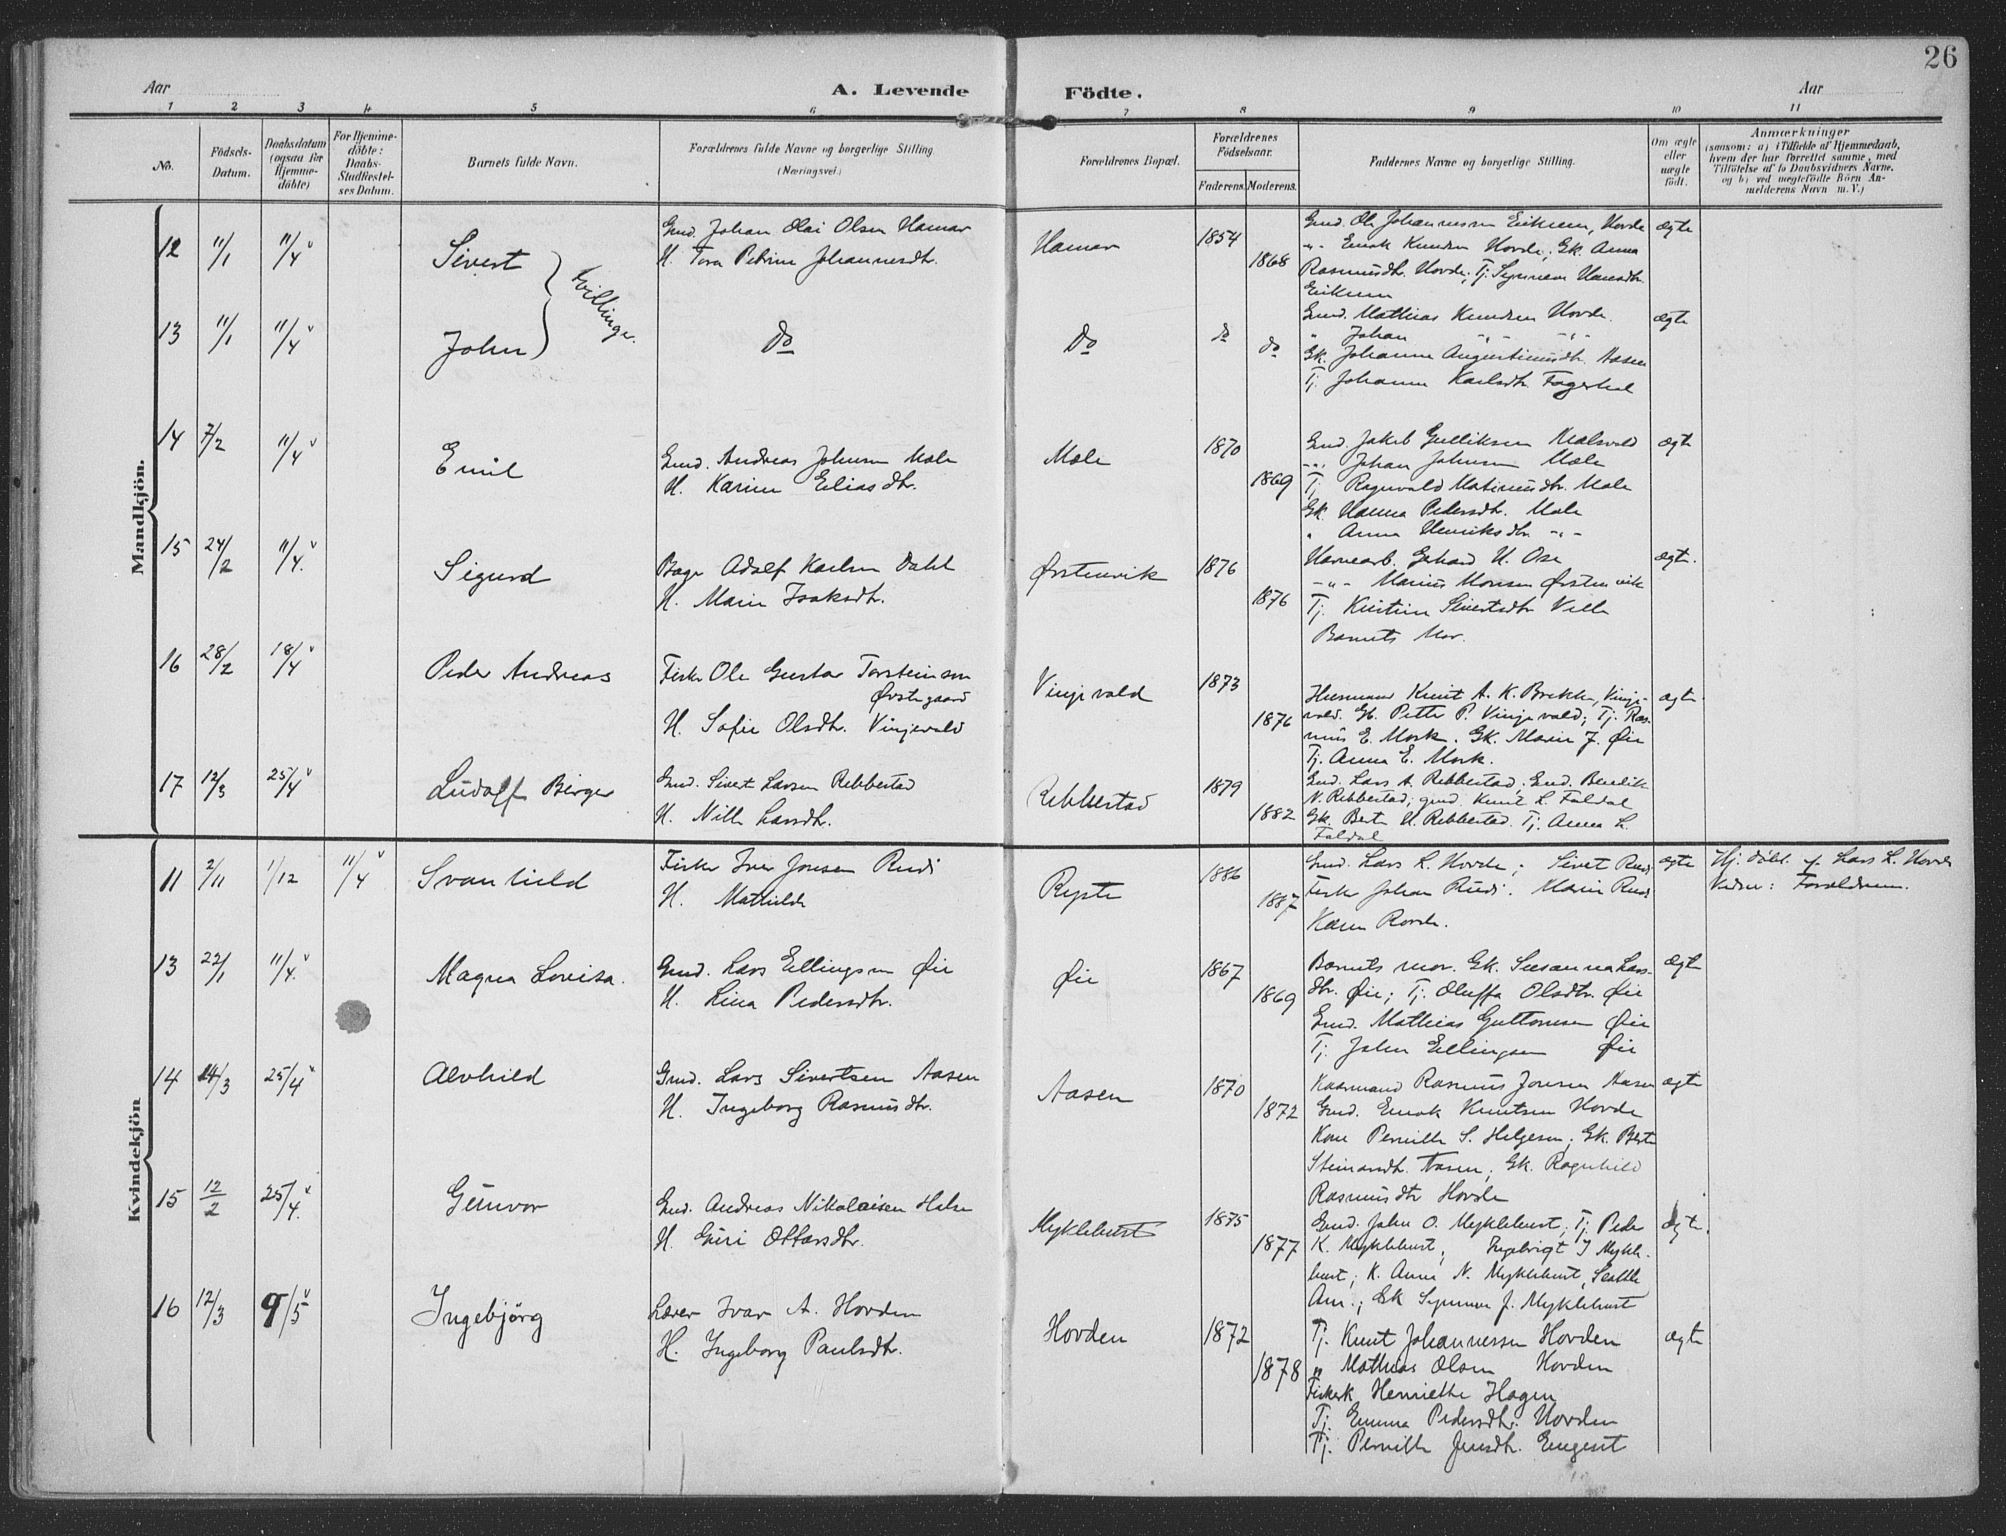 26
Aar
A. Levende
Födte.
Aar
1 2 3 4 5 6 7 8 9 10 11
No.
Födsels-
Datum.
Daabsdatum
(ogsaa for
Hjemme-
döbte)
For Hjemme-
döbte:
Daabs-
Stadfæstel-
ses Datum.
Barnets fulde Navn.
Forældrenes fulde Navne og borgerlige Stilling
(Næringsvei.)
Forældrenes Bopæl.
Forældrenes
Födselsaar.
Faderens. Moderens.
Faddernes Navne og borgerlige Stilling.
Om ægte
eller
uægte
födt.
Anmærkninger
(saasom: a) i Tilfælde af Hjemmedaab,
hvem der har forrettet samme, med
Tilföielse af to Daabsvidners Navne.
og b) ved uægtefödte Börn An-
melderens Navn m. V.)
Mandkjön.
12 11/1 11/4 v Sivert
Gmd. Johan Olai Olsen Hamar
H. Tora Petrine Johannesdtr.
Hamar 1854 1868
Gmd. Ole Johannessen Eiksund, Hovde
Knudsen Hovde; Gk. Anna
Rasmusdtr. Hovde; Tj. Hansdtr.
ægte
Tvillinger.
13 11/1 11/4 v John
Do Do do do
Gmd. Mathias Knudsen Hovde.
" Johan -"- -"-
Gk. Johanne Augustinusdtr. Aasen
Tj. Johanne Karlsdtr. Fagerhol
ægte
14 7/2 11/4 v Emil
Gmd. Andreas Johnsen Mole
H. Karine Eliasdtr.
Mole 1870 1869
Gmd. Jakob Gulliksen
-"- Johan Johnsen Mole
Tj. Ragnvald Mole
Gk. Hanna Pedersdtr. Mole
" Anna Henriksdtr -"-
ægte
15 24/2 11/4. v Sigurd
Bager Adolf Karlsen Dahl
H. Marie Isaksdtr.
Ørstenvik 1876 1876
Havnearb. Gerhard H. Ose
-"- Marius Monsen Ørstenvik
Tj. Kristine Sivertsdtr
Barnets Mor.
ægte.
16 28/2 18/4 v Peder Andreas
Fisker Ole Gustav Torsteinson
Ørstegaard
H. Sofie Olsdtr. Vinjevold
Vinjevold 1873 1876
Husmand Knut A. K. Brekke, Vinje-
vold. Gk. Petter P. Vinjevold; Tj. Ras-
mus E. Mork. Gk. Marie J. Øie
Tj. Anna E. Mork.
ægte
17 12/3 25/4 v Ludolf Birger
Gmd. Sivert Larsen Rebbestad
H. Nille Larsdtr.
Rebbestad 1879 1882
Gmd. Lars A. Rebbestad; Gmd. Bendik
N. Rebbestad; gmd. Knut L. Foldal
Gk. Berte H. Rebbestad. Tj. Anna L.
Foldal
Kvindekjön
11 2/11 1/12 11/4 v Svanhild
Fisker Iver Jonsen Rudi
H. Mathilde
Rypte 1886 1887
Gmd. Lars L. Hovde; Sivert Rudi
Fisker Johan Rudi. Marie Rudi
Karen Rovde.
ægte
Hj. döbt. af Lars L. Hovde
Vidner: Forældrene.
13 22/1 11/4. v Magna Lovisa.
Gmd. Lars Ellingsen Øie
H. Lina Pedersdtr.
Øie 1867 1869
Barnets mor. Gk. Susanna Lars-
dtr. Øie; Tj. Oluffa Olsdtr. Øie
Gmd. Mathias Guttormsen Øie
Tj. John Ellingsen Øie
ægte
14 14/3 25/4 v Alvhild
Gmd. Lars Sivertsen Aasen
H. Ingeborg Rasmusdtr.
Aasen 1870 1872
Kaarmand Rasmus Jonsen Aasen
Gmd. Knutsen Hovde
Kone Pernille S. Helgesen; Gk. Berte
Aasen; Gk. Ragnhild
Rasmusdtr Hovde
ægte
15 12/2 25/4. v Gunvor
Gmd. Andreas Nikolaisen Halse
H. Guri Ottarsdtr.
Myklebust 1875 1877
Gmd. John O. Myklebust; Tj. Peder
K. Myklebust; Ingebrigt J Mykle-
bust; K. Anna N. Myklebust, Seattle
Am.; Gk Synnøve J. Myklebust
ægte.
16 12/3 9/5 v Ingebjörg
Lærer Ivar A. Hovden
H. Ingeborg Paulsdtr.
Hovden 1872 1878
Tj. Knut Johannessen Hovden
" Mathias Olsen Hovden
Fiskerk Henriette Hagen
Tj. Emma Pedersdtr. Hovden
Tj. Pernille Jensdtr. Engeset
ægte